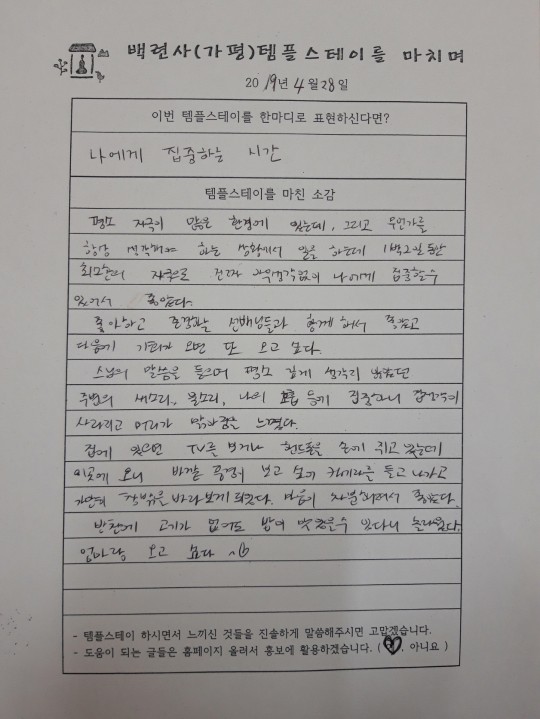 백련사(가평)템플스테이를 마치며
2019년 4월 28일
이번 템플스테이를 한마디로 표현하신다면?
나에게 집중하는 시간
템플스테이를 마친 소감
평소 자극이 많은 환경에 있는데, 그리고 무언가를
항상 생각해야 하는 상황에서 일을 하는데 1박2일동안
최소한의 자극으로 나에게 집중할수
있어서 좋았다.
좋아하고 존경하는 선배님들과 함께 해서 좋았고
다음에 기회가 되면 또 오고 싶다.
스님의 말씀을 들으며 평소 깊게 생각치 않았던
주변의 새소리, 물소리, 나의 호흡 등에 집중하니 잡생각이
사라지고 머리가 맑아짐을 느꼈다.
집에 있으면 TV를 보거나 핸드폰을 손에 쥐고 있는데
이곳에 오니 바깥 풍경이 보고 싶어 카메라를 들고 나가고
자연의 창밖을 바라보게 되었다. 마음이 차분해져서 좋았다.
반찬에 고기가 없어도 밥이 맛있을수 있다니 놀라웠다.
엄마랑 오고 싶다 ^^
- 템플스테이 하시면서 느끼신 것들을 진솔하게 말씀해주시면 고맙겠습니다.
- 도움이 되는 글들은 홈페이지 올려서 홍보에 활용하겠습니다. ( 예, 아니요 )